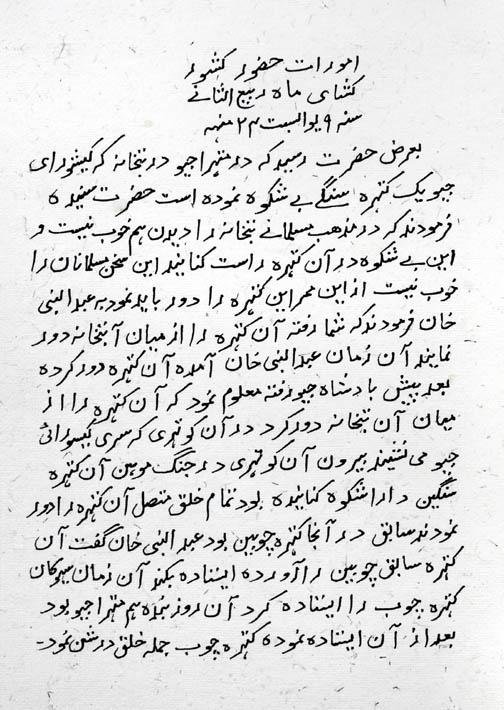 امورات حضور کشور
کشای ماه ربیع الثانے
سنه ۹
بعرض حضرت رسید که در متهرا جیو در بتخانه که کیشورای
جیو یک کتهره سنگے بے شکوه نموده است حضرت شنیده
فرمودند که در مذهب مسلمانے بتخانه را دیدن هم خوب نیست و
این بے شکوه در آن کتهره راست کنانیده این سخن مسلمانان را
خوب نیست از این ممر این کتهره را دور باید نمود به عبد النبی
خان فرمودند که شما رفته آن کتهره را از میان آن بتخانه دور
نمایند آن زمان عبد النبی خان آمده آن کتهره دور کرده
بعد پیش بادشاه جیو رفته معلوم نمود که آن کتهره را از
میان آن بتخانه دور کرد در آن کوتهری که سری کیسورائی
جیو می نشیند بیرون آن کوتهری در جنگ موہن آن کتهره
سنگین دارا شکوه کنانیده بود تمام خلق متصل آن کتهره را دور
نمودند سابق در آنجا کتهره چوبین بود عبد النبی خان گفت آن
کتهره سابق چوبین را آورده ایستاده بکند آن زمان
کتهره چوب را ایستاده کرد آن روز بنده هم متهرا جیو بود
بعد از آن ایستاده نموده کتهره چوب جمله خلق درشن نمود -